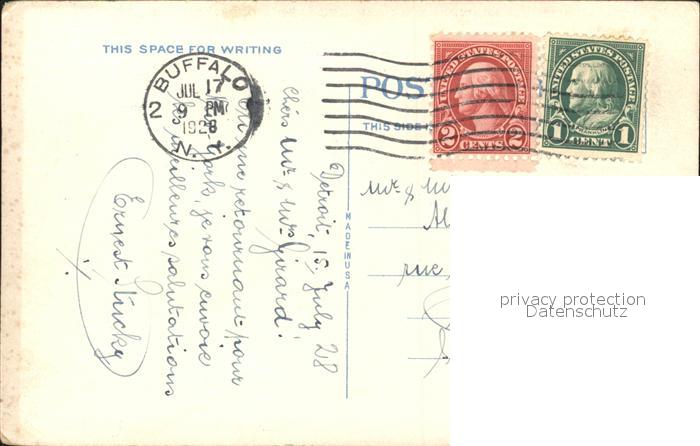 THIS SPACE FOR WRITING
BUFFALO
JUL 17
2 9 PM
1928
N.Y.
POS
THIS SIDE
UNITED STATES POSTAGE
2 CENTS 2
UNITED STATES POSTAGE
FRANKLIN
1 CENT 1
Detroit, 15, July, 28
Chers Mr & Mrs Girard.
En me retournant pour
New York, je vous envoie
les meilleures salutations
Ernest
MADE IN USA
Mr & M
rue,
privacy protection
Datenschutz